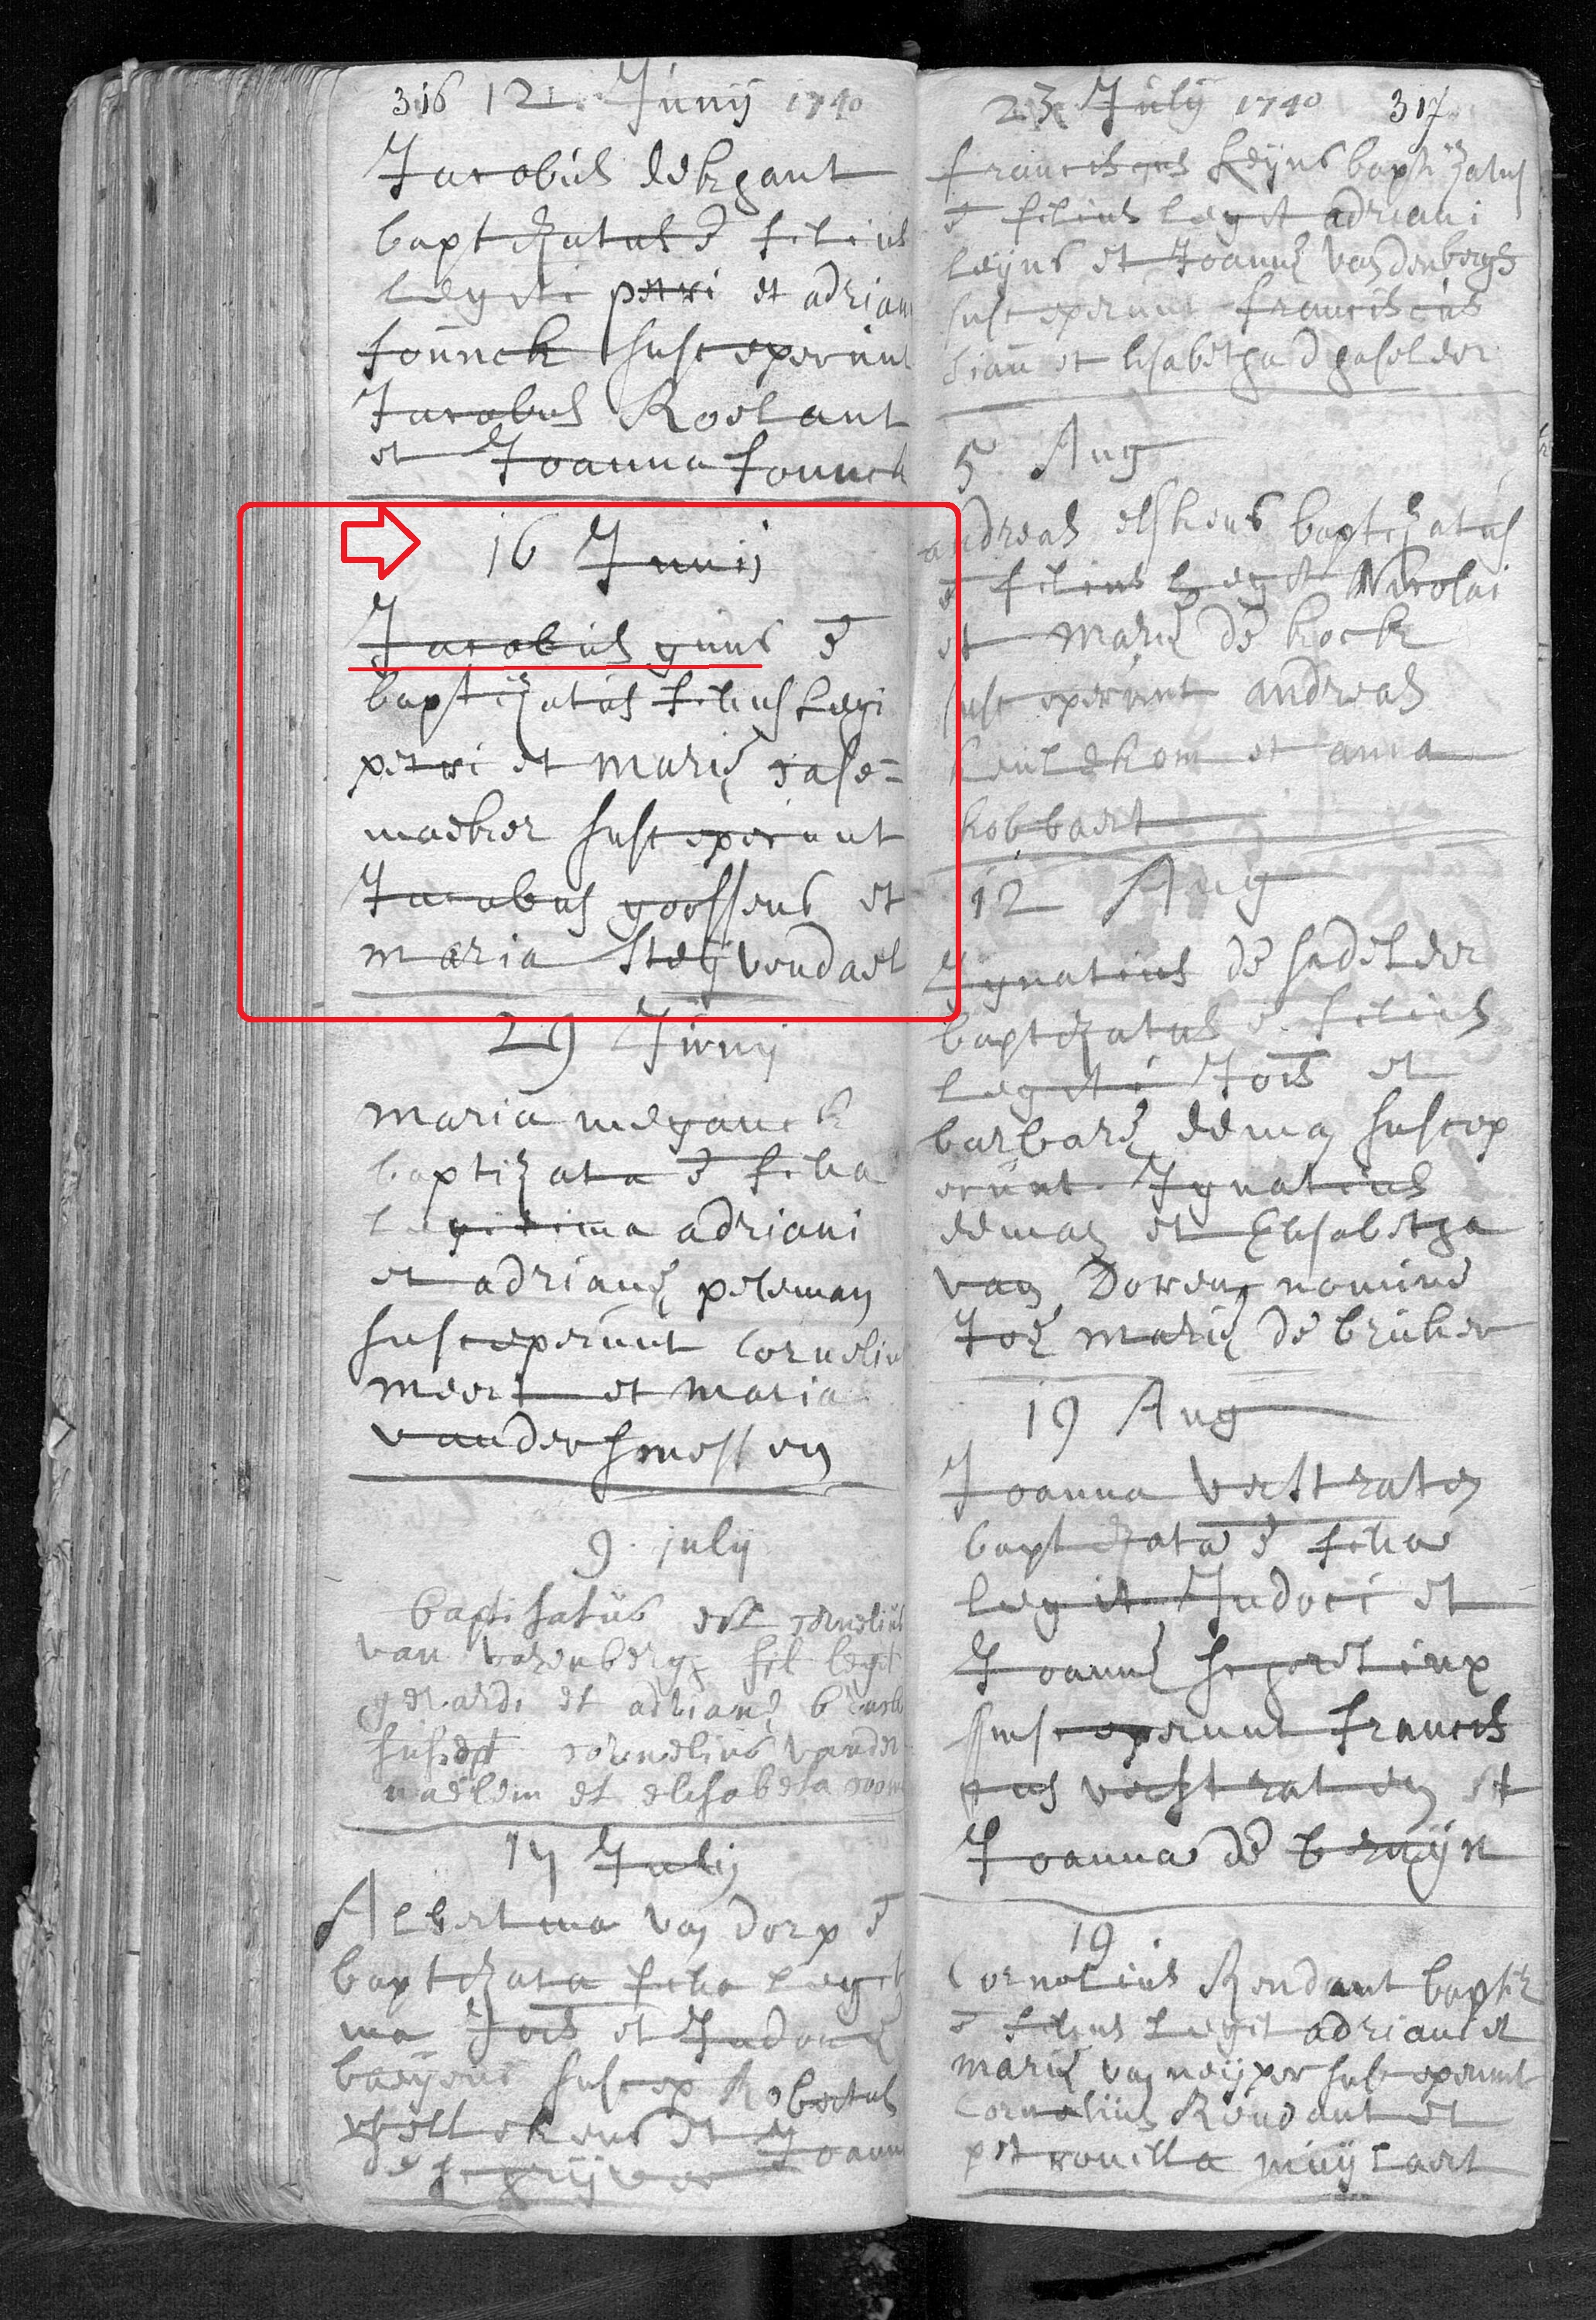 316 12 Junij 1740
Jacobus de
baptizatus ē filius
legiti petri et adrian
fonnck susceperunt
Jacobus Roelant
et Joanna fonnck
16 Junij
Jacobus guns ē
baptizatus filius legi
petri et marię case=
maeker susceperunt
Jacobus goossens et
maria steijvendael
29 Junij
maria meganck
baptizata ē filia
legitima adriani
et adrianę peleman
susceperunt Corneliu
meert et maria
vandersmessen
9 julij
baptisatus est cornelius
van fil legit
gerardi et adrianę
suscept cornelius vander
et elisabeta
17 Julij
Albertina van dorp ē
baptizata filia legit
ma Jois et Judocę
suscep Robertus
et Joann
de
23 Julij 1740 317
franciscus leijns baptizatus
ē filius legit adriani
leijns et Joannę vandenbergh
susceperunt franciscus
et elisabetha d haselder
5 Aug
andreas elskens baptizatus
ē filius legit Nicolai
et marię de kock
susceperunt andreas
et anna
robbaert
12 Aug
Ignatius de sadeleer
baptizatus ē filius
legiti Jois et
barbarę suscep
erunt Ignatius
et Elisabetha
van nomine
Joę marię de bruker
19 Aug
Joanna verstraten
baptizata ē filia
legit Judoci et
Joannę
susceperunt francis
cus verstraten et
Joanna de bruijn
19
Cornelius Rondant baptiz
ē filius legit adriani et
marię van susceperunt
Cornelius Rondant et
petronilla muijlaert